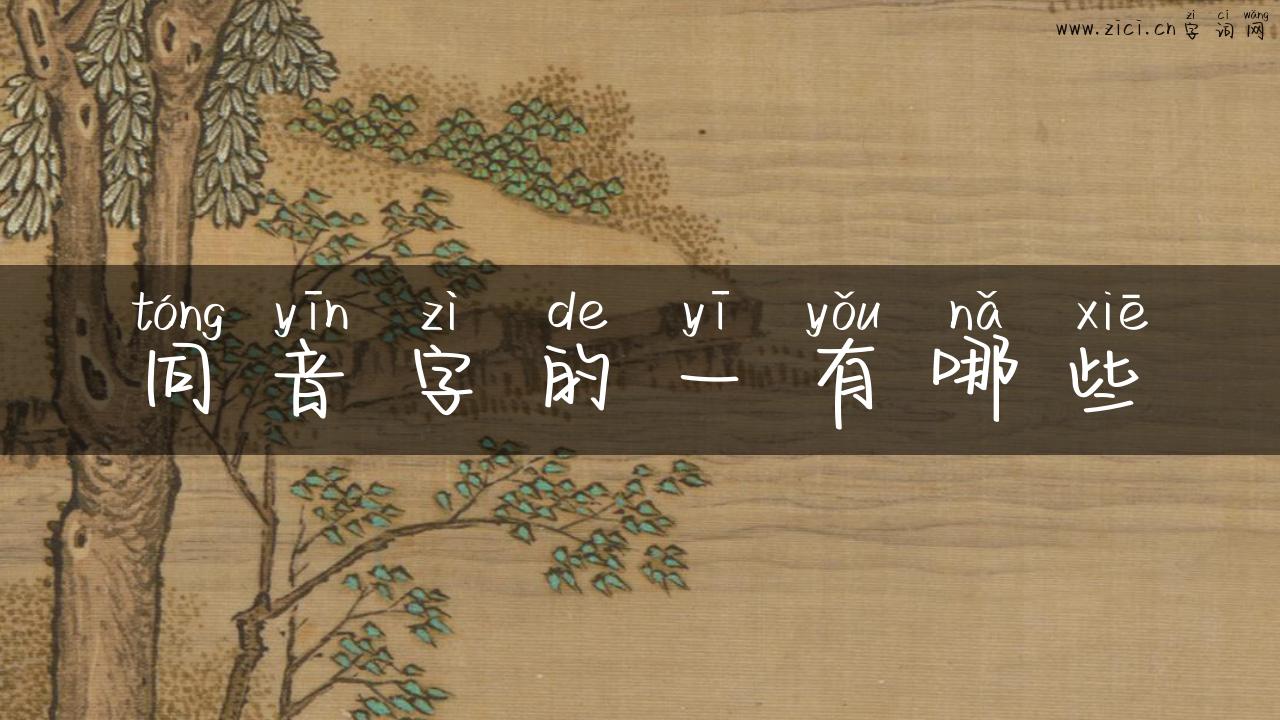 zì cí wǎng
www.zici.cn 字词网
tóng yīn zì de yī yǒu nǎ xiē
同音字的一有哪些